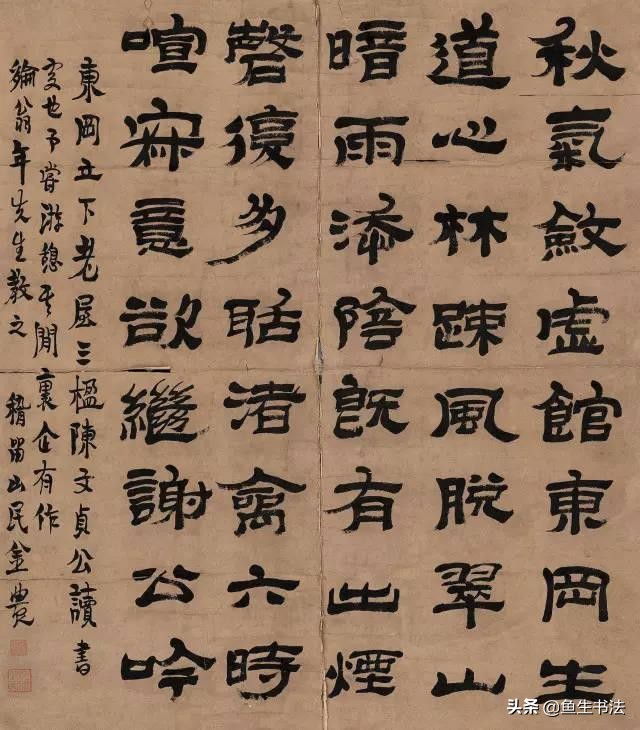 秋氣斂虛館東岡生
道心林疎風脫翠山
暗雨添陰既有出煙
磬復多聒渚禽六時
喧寂意欲繼謝公吟
東岡立下老屋三楹陳文貞公讀書
處也予嘗游憩其間裏企有作
綸翁年先生教之 稽留山民金農
头条@鱼生书法